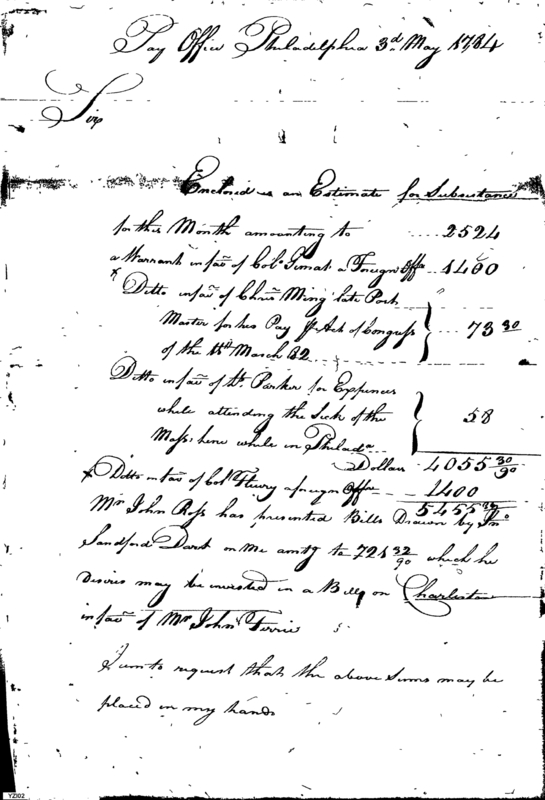 Pay Office Philadelphia 3d. May 1784
Sir
Enclosed is an Estimate for Subsistance
for this Month amounting to .... 2524
a Warrant in favr of Colo. Gimat a Foreign Offr .. 1400
x Ditto in favr of Chrisr Ming late Post
Master for his Pay Pr Act of Congress } ... 73 30
of the 11th March 82
Ditto in favr of Dr. Parker for Expences
while attending the Sick of the } 58
Mass: line while in Philada
Dollars 4055 30/90
x Ditto in favr of Colo Fleury a foreign Offr 1400
5455 30
Mr John Ross has presented Bills Drawn by Jno
Sandford Dart on Me amtg to 721 32/90 which he
desires may be invested in a Bill on Charlestown
in favr of Mr. John Ferrie
I am to request that the above Sums may be
placed in my hands
YZI02